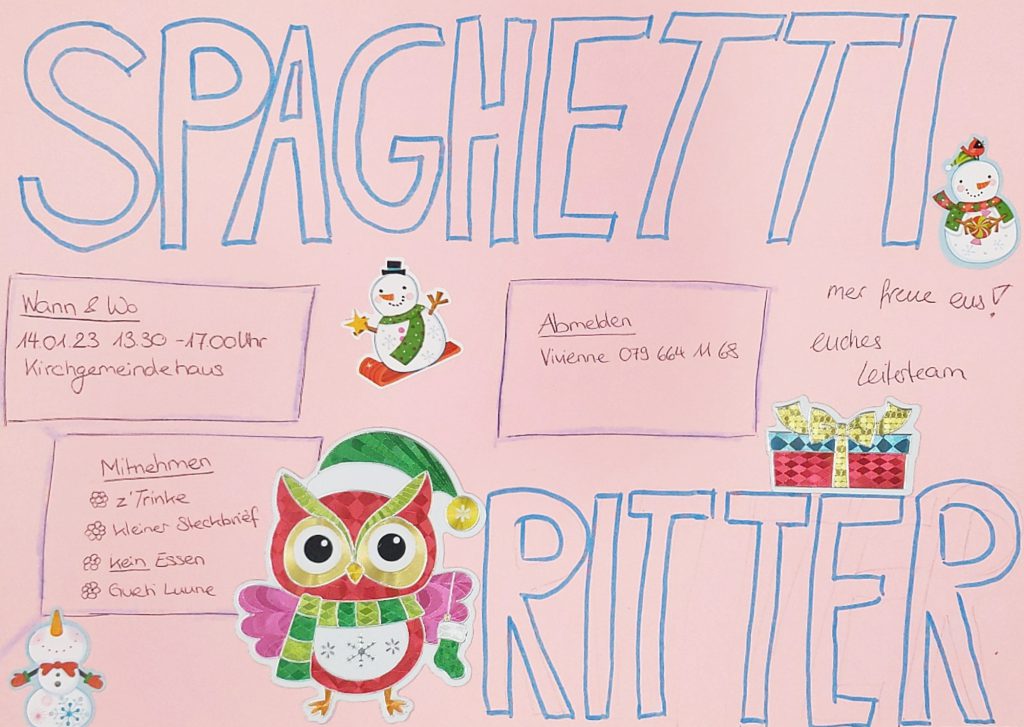 SPAGHETTI
Wann & Wo
14.01.23 13.30 - 17.00 Uhr
Kirchgemeindehaus
Abmelden
Vivienne 079 664 11 68
mer freue eus!
euches
Leitsteam
Mitnehmen
z'Trinke
kleiner Steckbrief
Kein Essen
Gueti Luune
RITTER